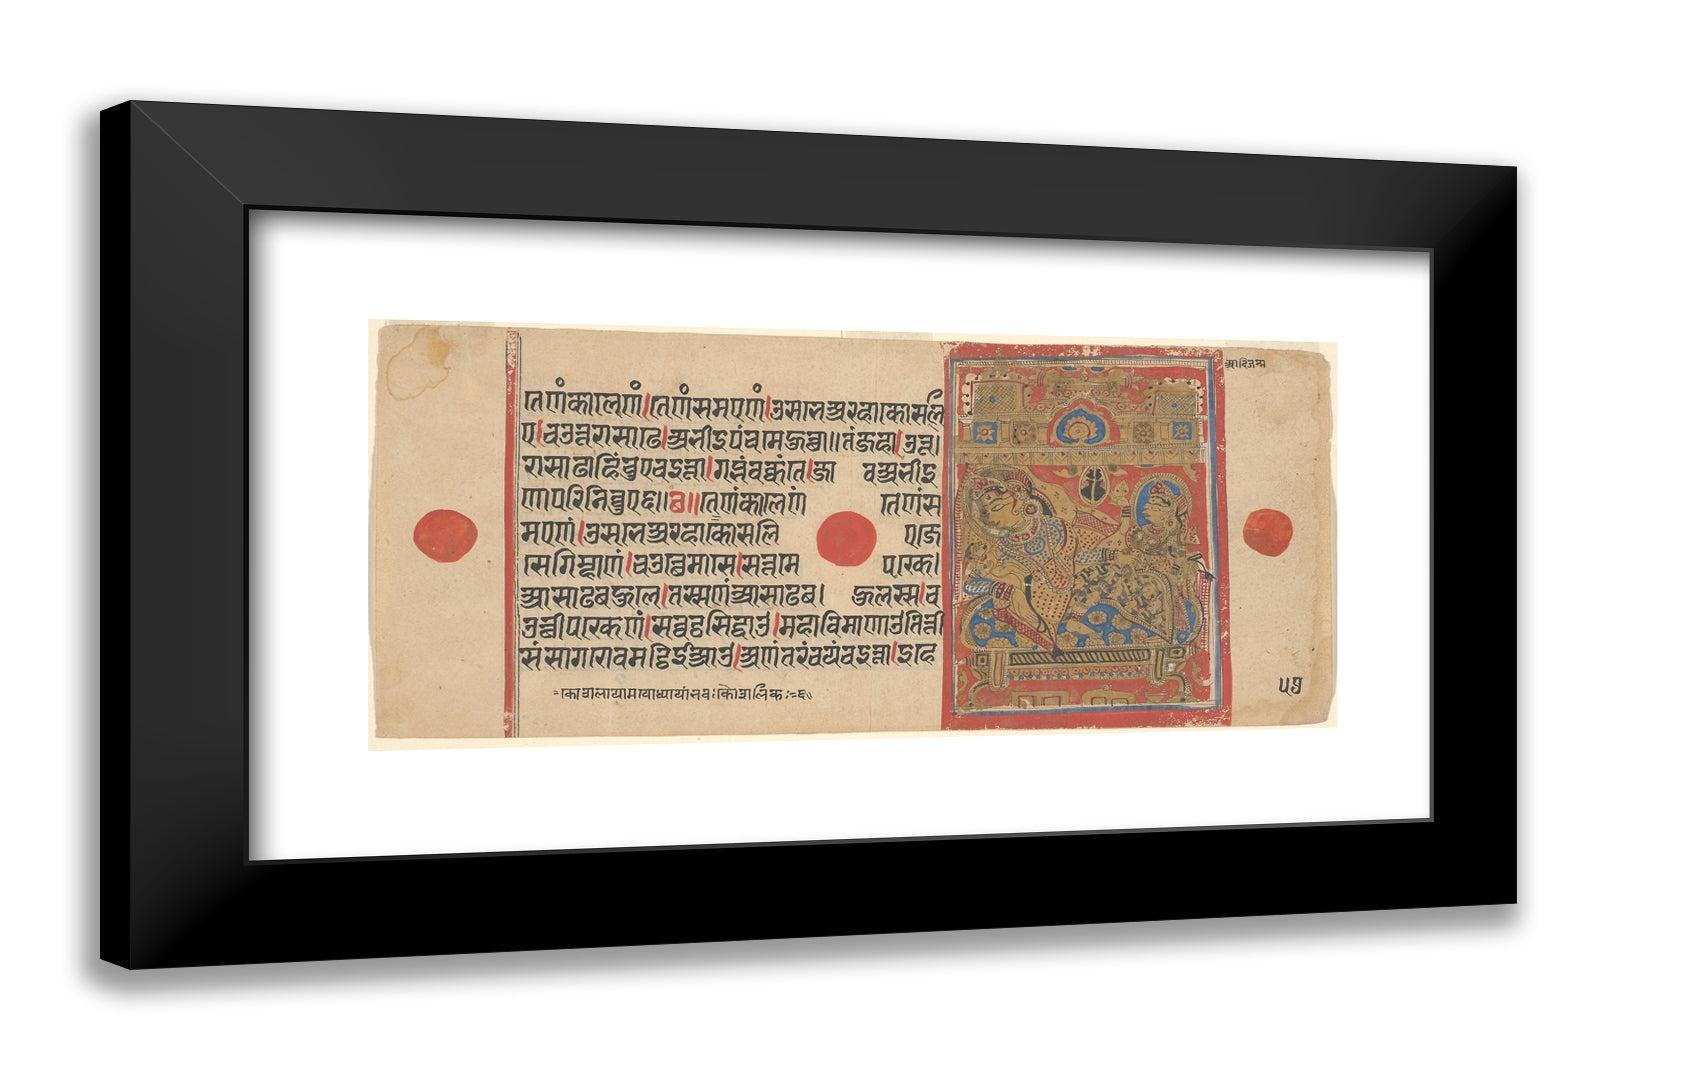 तेणंकालेणं।तेणंसमएणं।उसभेअरहाकोसलि
ए।चउउत्तरासाढे।अभीइपंचमेहोत्था॥तंजहा।उत्त।
रासाढाहिंचुएचइत्ता।गब्भंवक्कंते।जा वअभीइ
णापरिनिव्वुए॥छ॥तेणंकालेणं तेणंस
मएणं।उसभेअरहाकोसलि एजे
सेगिम्हाणं।चउत्थेमासे।सत्तमे पक्खे।
आसाढबहुले।तस्सणंआसाढब। हुलस्स।च
उत्थीपक्खेणं।सव्वट्ठसिद्धाउ।महाविमाणाउतित्ती
संसागरोवमट्ठिईआउ।अणंतरंचयंचइत्ता।इहे
कोशलायामयोध्यायांभवःकौशलिकः
आदिजन्म